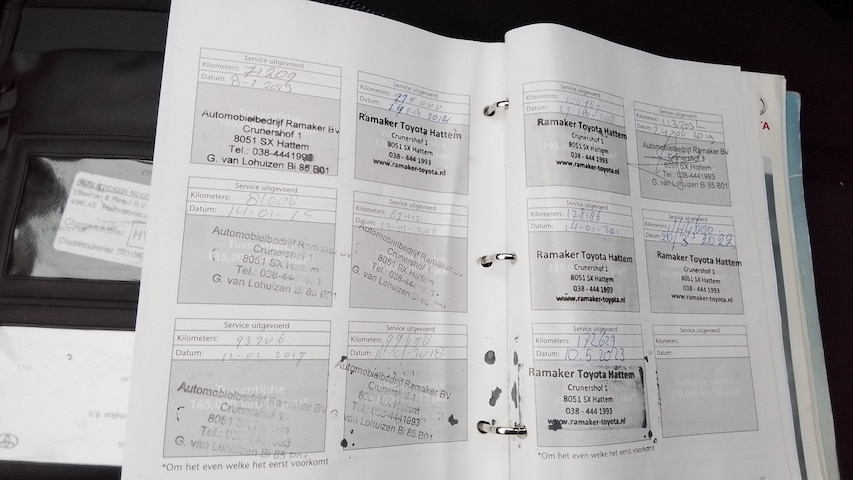 Service uitgevoerd
Kilometers: 71209
Datum: 8-1-2013
Automobielbedrijf Ramaker BV
Crunershof 1
8051 SX Hattem
Tel.: 038-4441993
G. van Lohuizen Bi 85 B01
Service uitgevoerd
Kilometers:
Datum:
Ramaker Toyota Hattem
Crunershof 1
8051 SX Hattem
038 - 444 1993
www.ramaker-toyota.nl
Service uitgevoerd
Kilometers:
Datum: 14-01-15
Automobielbedrijf Ramaker
Crunershof 1
8051 SX Hattem
Tel.: 038-44
G. van Lohuizen Bi 85 B01
Service uitgevoerd
Kilometers:
Datum: 13-01-2016
Automobielbedrijf Ramaker
Crunershof 1
8051 SX Hattem
Tel.: 038-444
G. van Lohuizen Bi 85 B01
Service uitgevoerd
Kilometers: 93206
Datum: 11-01 2017
Tussentijdse
Automobielbedrijf Ramaker BV
Crunershof 1
8051 SX Hattem
Tel.: 038-
G. van Lohuizen Bi 85 B01
Service uitgevoerd
Kilometers:
Datum:
Automobielbedrijf Ramaker BV
Crunershof 1
8051 SX Hattem
Tel.: 038-4441993
G. van Lohuizen Bi 85 B01
*Om het even welke het eerst voorkomt
Service uitgevoerd
Kilometers:
Datum:
Ramaker Toyota Hattem
Crunershof 1
8051 SX Hattem
038 - 444 1993
www.ramaker-toyota.nl
Service uitgevoerd
Kilometers:
Datum:
Automobielbedrijf Ramaker BV
Crunershof 1
8051 SX Hattem
Tel.: 038-4441993
G. van Lohuizen Bi 85 B01
Service uitgevoerd
Kilometers: 128186
Datum:
Ramaker Toyota Hattem
Crunershof 1
8051 SX Hattem
038 - 444 1993
www.ramaker-toyota.nl
Service uitgevoerd
Kilometers:
Datum:
Ramaker Toyota Hattem
Crunershof 1
8051 SX Hattem
038 - 444 1993
www.ramaker-toyota.nl
Service uitgevoerd
Kilometers:
Datum: 10.5.2023
Ramaker Toyota Hattem
Crunershof 1
8051 SX Hattem
038 - 444 1993
www.ramaker-toyota.nl
Service uitgevoerd
Kilometers:
Datum:
*Om het even welke het eerst voorkomt